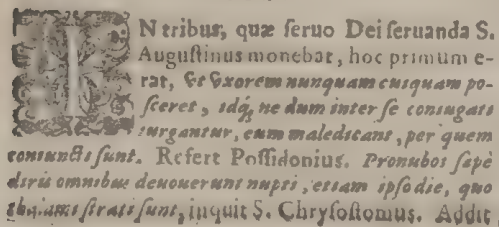 IN tribus, quæ seruo Dei seruanda S.
Augustinus monebat, hoc primum e-
rat, vt vxorem nunquam cuiquam po-
sceret, idq́; ne dum inter se coniugati
iurgantur, eum maledicant, per quem
coniuncti sunt. Refert Possidonius. Pronubos sæpè
diris omnibus deuouerunt nupti, etiam ipso die, quo
thalami strati sunt, inquit S. Chrysostomus. Addit